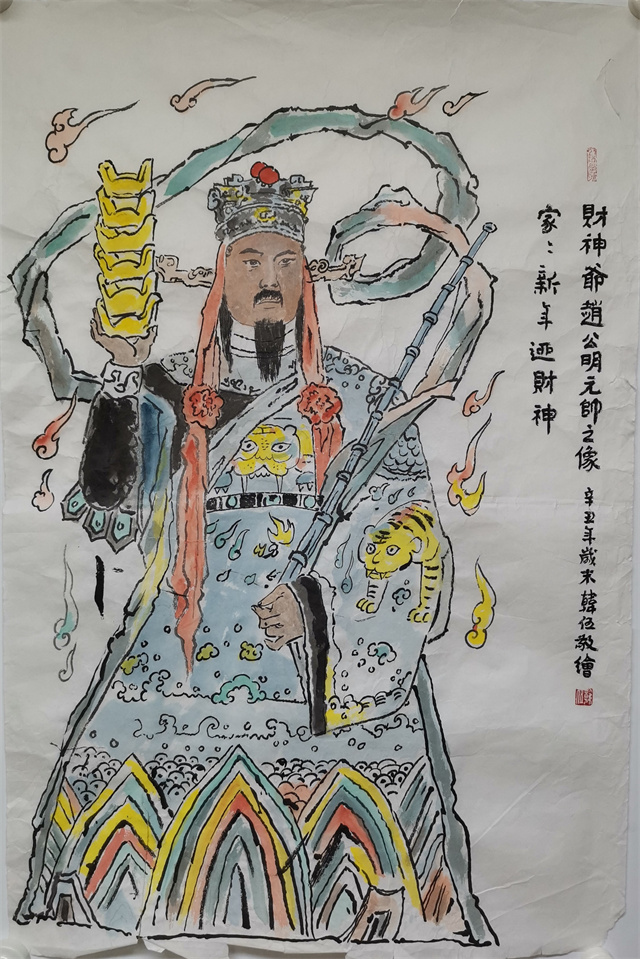 財神爺趙公明元帥之像 辛丑年歲末韓伍敬繪
家〻新年迎財神